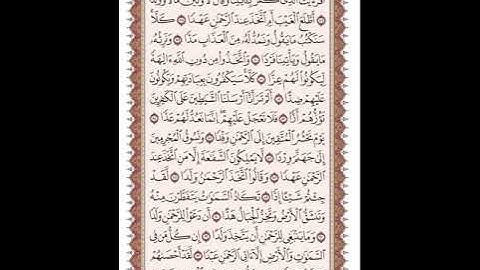 أَفَرَءَيْتَ ٱلَّذِى كَفَرَ بِـَٔايَـٰتِنَا وَقَالَ لَأُوتَيَنَّ مَالًا وَوَلَدًا
أَطَّلَعَ ٱلْغَيْبَ أَمِ ٱتَّخَذَ عِندَ ٱلرَّحْمَـٰنِ عَهْدًا كَلَّا
سَنَكْتُبُ مَا يَقُولُ وَنَمُدُّ لَهُۥ مِنَ ٱلْعَذَابِ مَدًّا وَنَرِثُهُۥ
مَا يَقُولُ وَيَأْتِينَا فَرْدًا وَٱتَّخَذُوا۟ مِن دُونِ ٱللَّهِ ءَالِهَةً
لِّيَكُونُوا۟ لَهُمْ عِزًّا كَلَّا سَيَكْفُرُونَ بِعِبَادَتِهِمْ وَيَكُونُونَ
عَلَيْهِمْ ضِدًّا أَلَمْ تَرَ أَنَّآ أَرْسَلْنَا ٱلشَّيَـٰطِينَ عَلَى ٱلْكَـٰفِرِينَ
تَؤُزُّهُمْ أَزًّا فَلَا تَعْجَلْ عَلَيْهِمْ إِنَّمَا نَعُدُّ لَهُمْ عَدًّا
يَوْمَ نَحْشُرُ ٱلْمُتَّقِينَ إِلَى ٱلرَّحْمَـٰنِ وَفْدًا وَنَسُوقُ ٱلْمُجْرِمِينَ
إِلَىٰ جَهَنَّمَ وِرْدًا لَّا يَمْلِكُونَ ٱلشَّفَـٰعَةَ إِلَّا مَنِ ٱتَّخَذَ عِندَ
ٱلرَّحْمَـٰنِ عَهْدًا وَقَالُوا۟ ٱتَّخَذَ ٱلرَّحْمَـٰنُ وَلَدًا لَّقَدْ
جِئْتُمْ شَيْـًٔا إِدًّا تَكَادُ ٱلسَّمَـٰوَٰتُ يَتَفَطَّرْنَ مِنْهُ
وَتَنشَقُّ ٱلْأَرْضُ وَتَخِرُّ ٱلْجِبَالُ هَدًّا أَن دَعَوْا۟ لِلرَّحْمَـٰنِ وَلَدًا
وَمَا يَنۢبَغِى لِلرَّحْمَـٰنِ أَن يَتَّخِذَ وَلَدًا إِن كُلُّ مَن فِى
ٱلسَّمَـٰوَٰتِ وَٱلْأَرْضِ إِلَّآ ءَاتِى ٱلرَّحْمَـٰنِ عَبْدًا لَّقَدْ أَحْصَىٰهُمْ